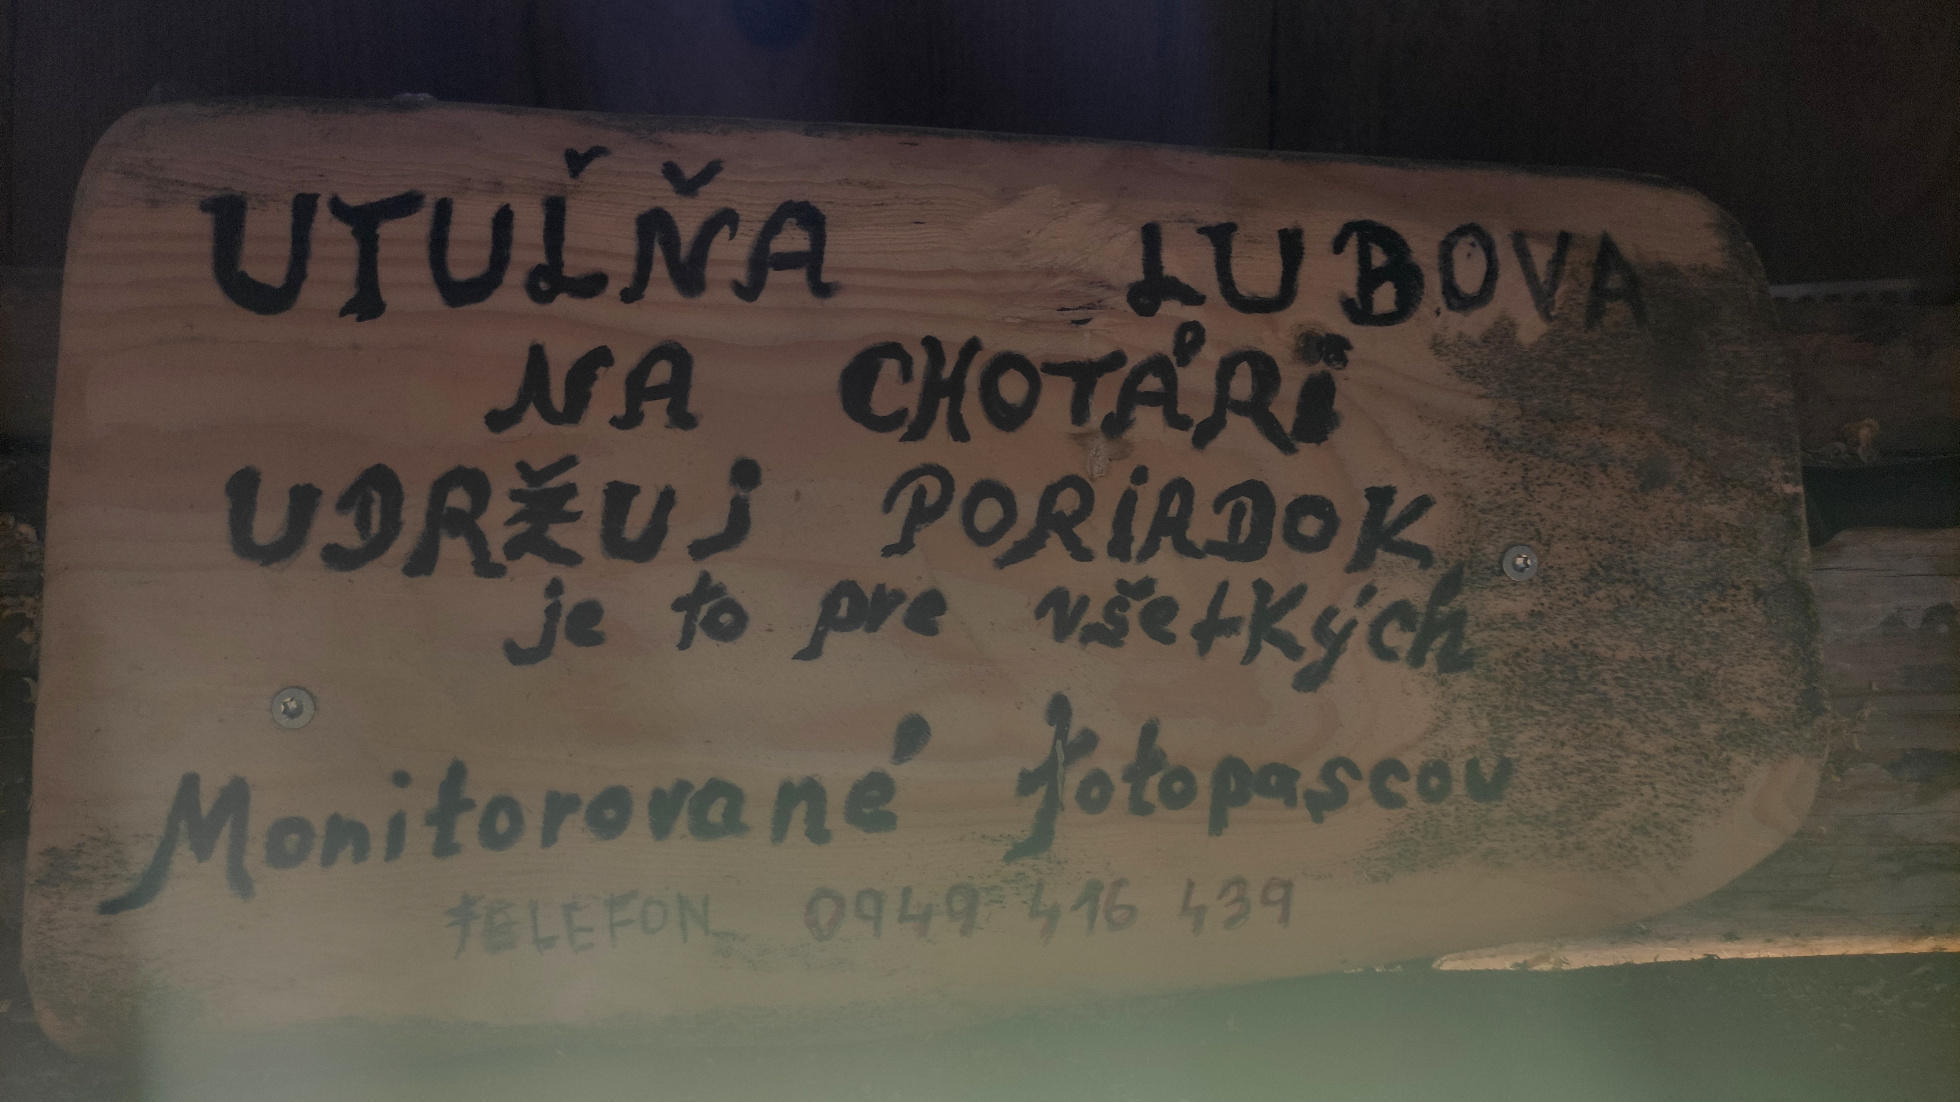 UTUĽŇA LUBOVA
NA CHOTÁRI
UDRŽUJ PORIADOK
je to pre všetkých
Monitorované fotopascov
TELEFON 0949 416 439